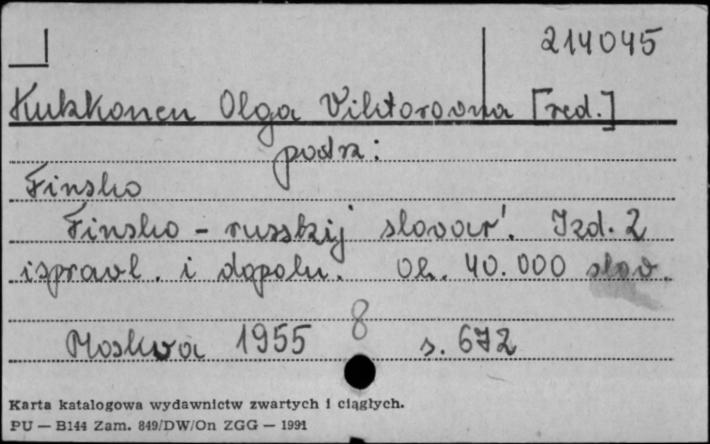 214045
Kukkonen Olga Viktorovna [red.]
podrz:
Finsko
Finsko - russkij slovar'. Izd. 2
ispravl. i dopoln. Ok. 40.000 slov.
Moskva 1955 8 s. 672
Karta katalogowa wydawnictw zwartych i ciągłych.
PU — B144 Zam. 849/DW/On ZGG — 1991